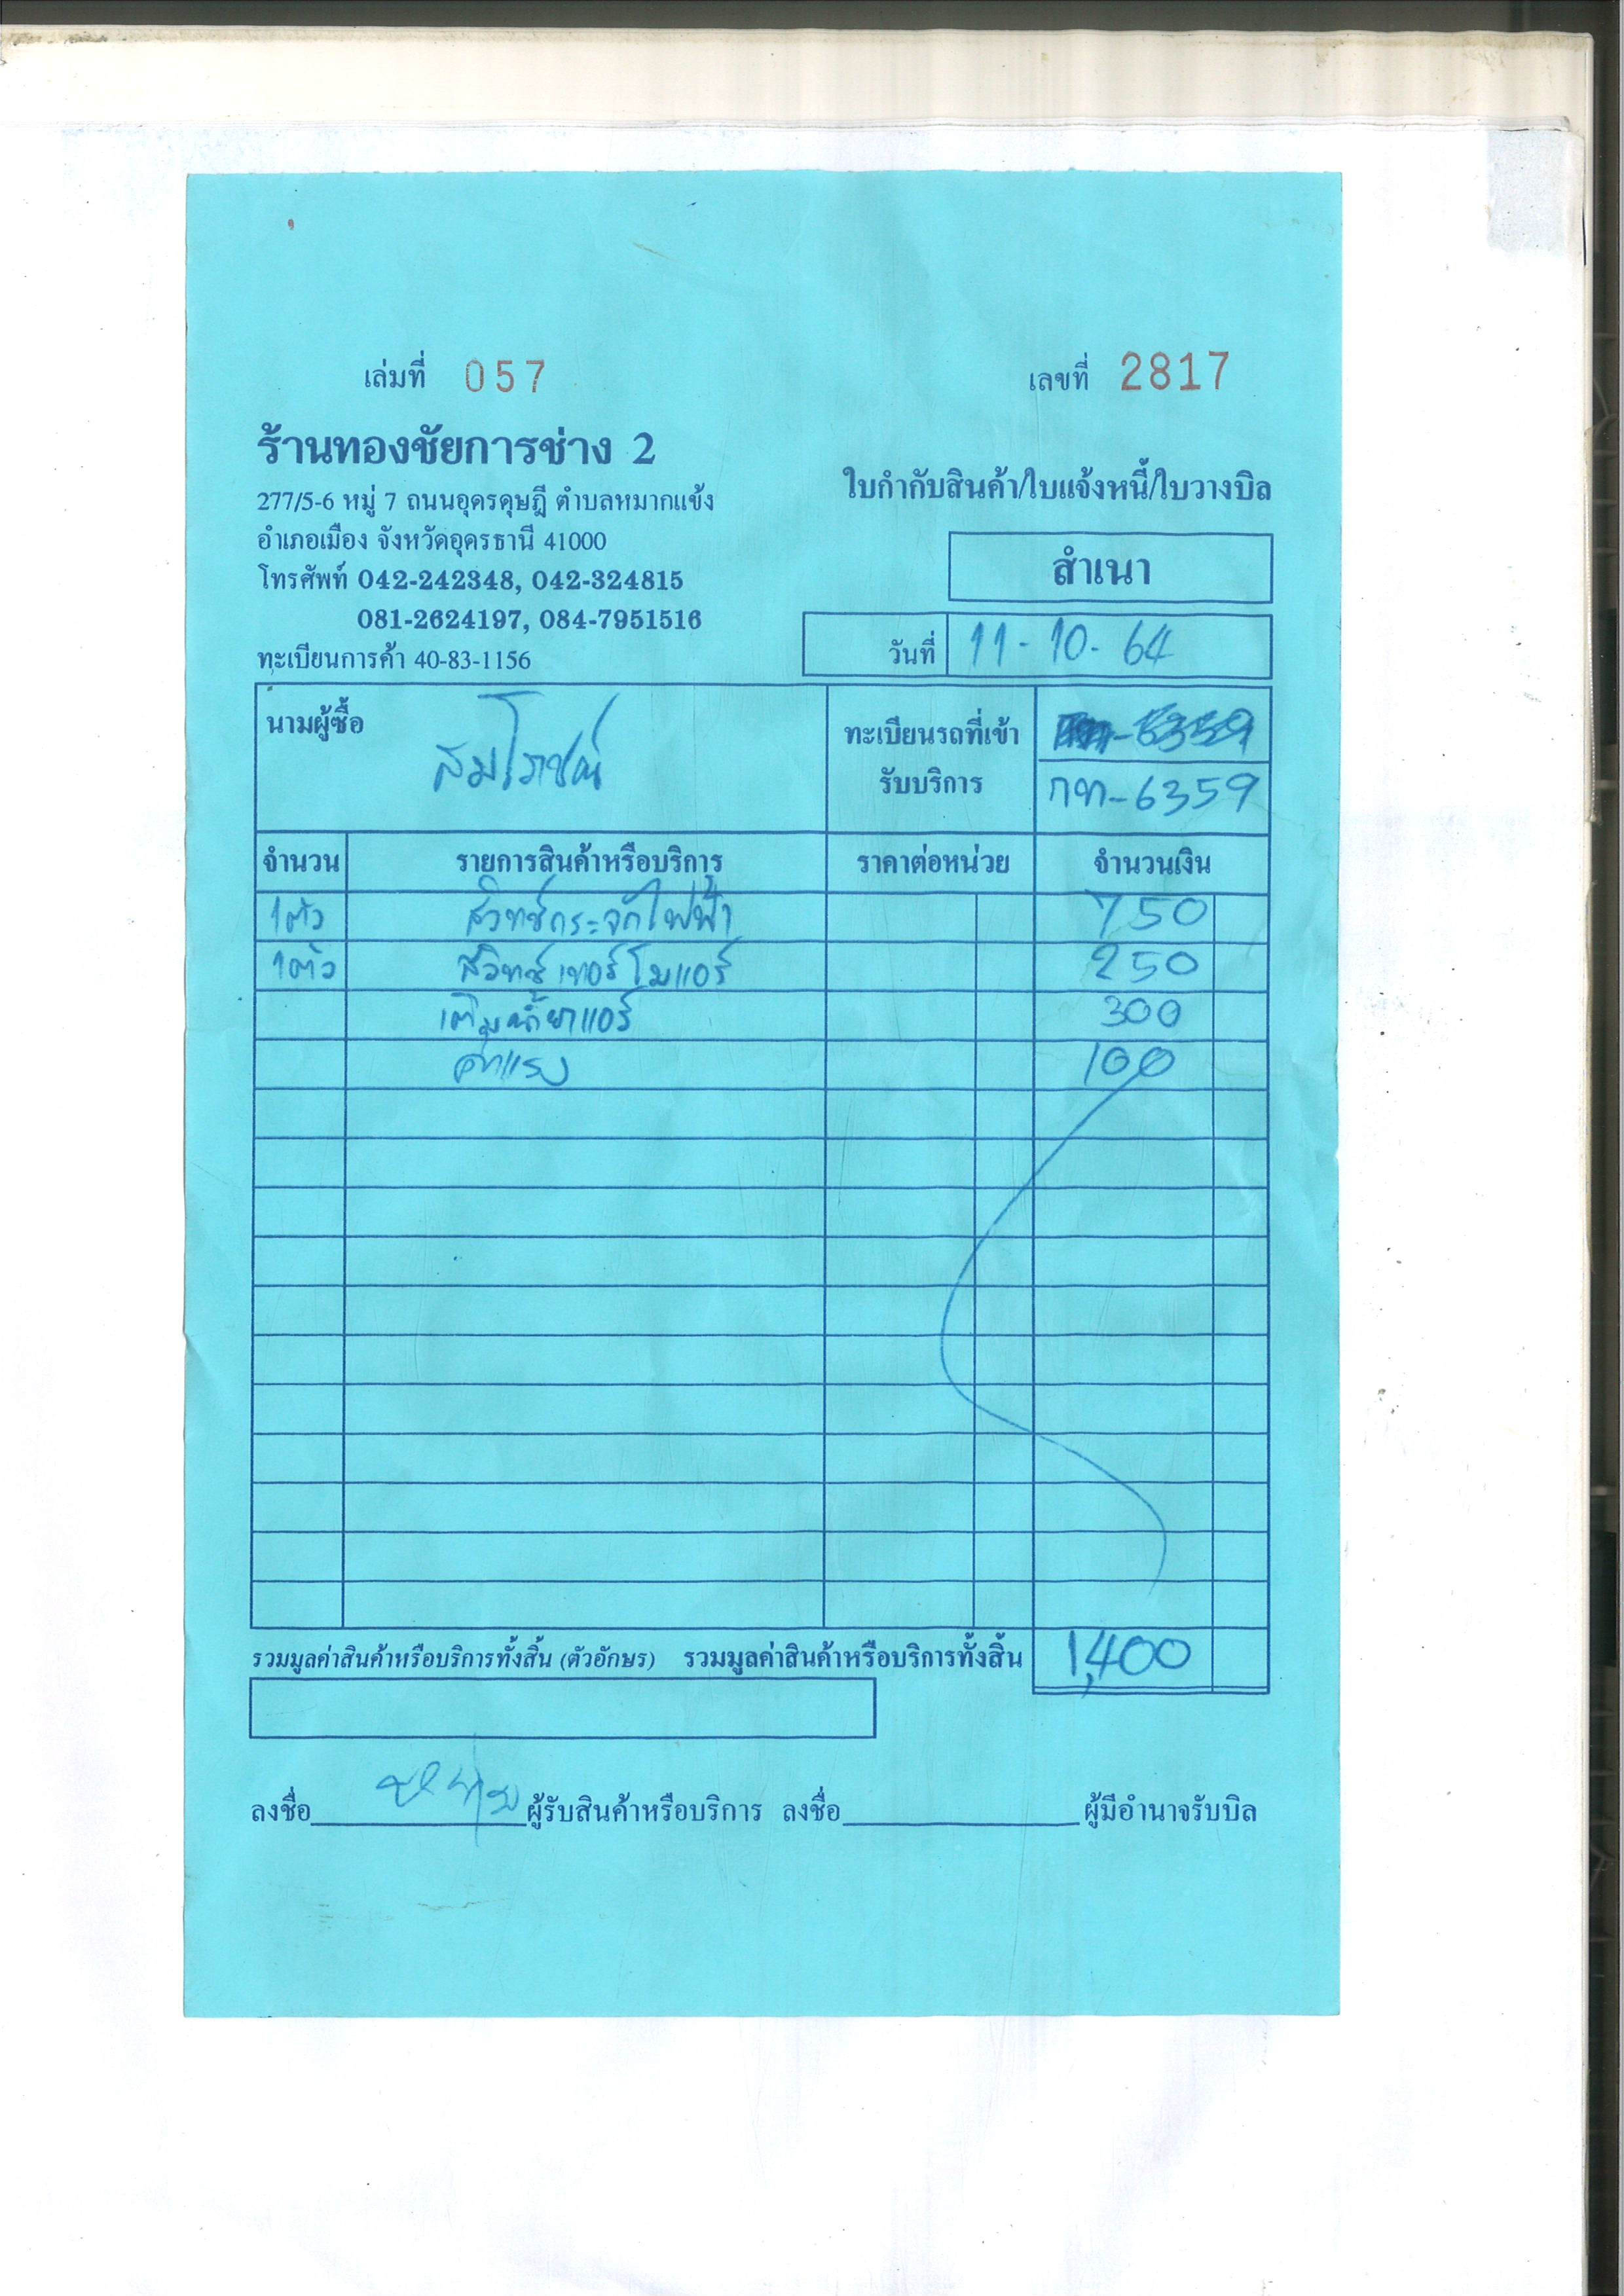 เล่มที่ 057 เลขที่ 2817
ร้านทองชัยการช่าง 2
277/5-6 หมู่ 7 ถนนอุดรดุษฎี ตำบลหมากแข้ง
ใบกำกับสินค้า/ใบแจ้งหนี้/ใบวางบิล
อำเภอเมือง จังหวัดอุดรธานี 41000
สำเนา
โทรศัพท์ 042-242348, 042-324815
081-2624197, 084-7951516
วันที่ 11-10-64
ทะเบียนการค้า 40-83-1156
นามผู้ซื้อ สมโภชน์
ทะเบียนรถที่เข้า
รับบริการ กท-6359
จำนวน รายการสินค้าหรือบริการ ราคาต่อหน่วย จำนวนเงิน
1ตัว สวิทช์กระจกไฟฟ้า 750
1ตัว สวิทช์เทอร์โมแอร์ 250
เติมน้ำยาแอร์ 300
ค่าแรง 100
รวมมูลค่าสินค้าหรือบริการทั้งสิ้น (ตัวอักษร) รวมมูลค่าสินค้าหรือบริการทั้งสิ้น 1,400
ลงชื่อ ผู้รับสินค้าหรือบริการ ลงชื่อ ผู้มีอำนาจรับบิล